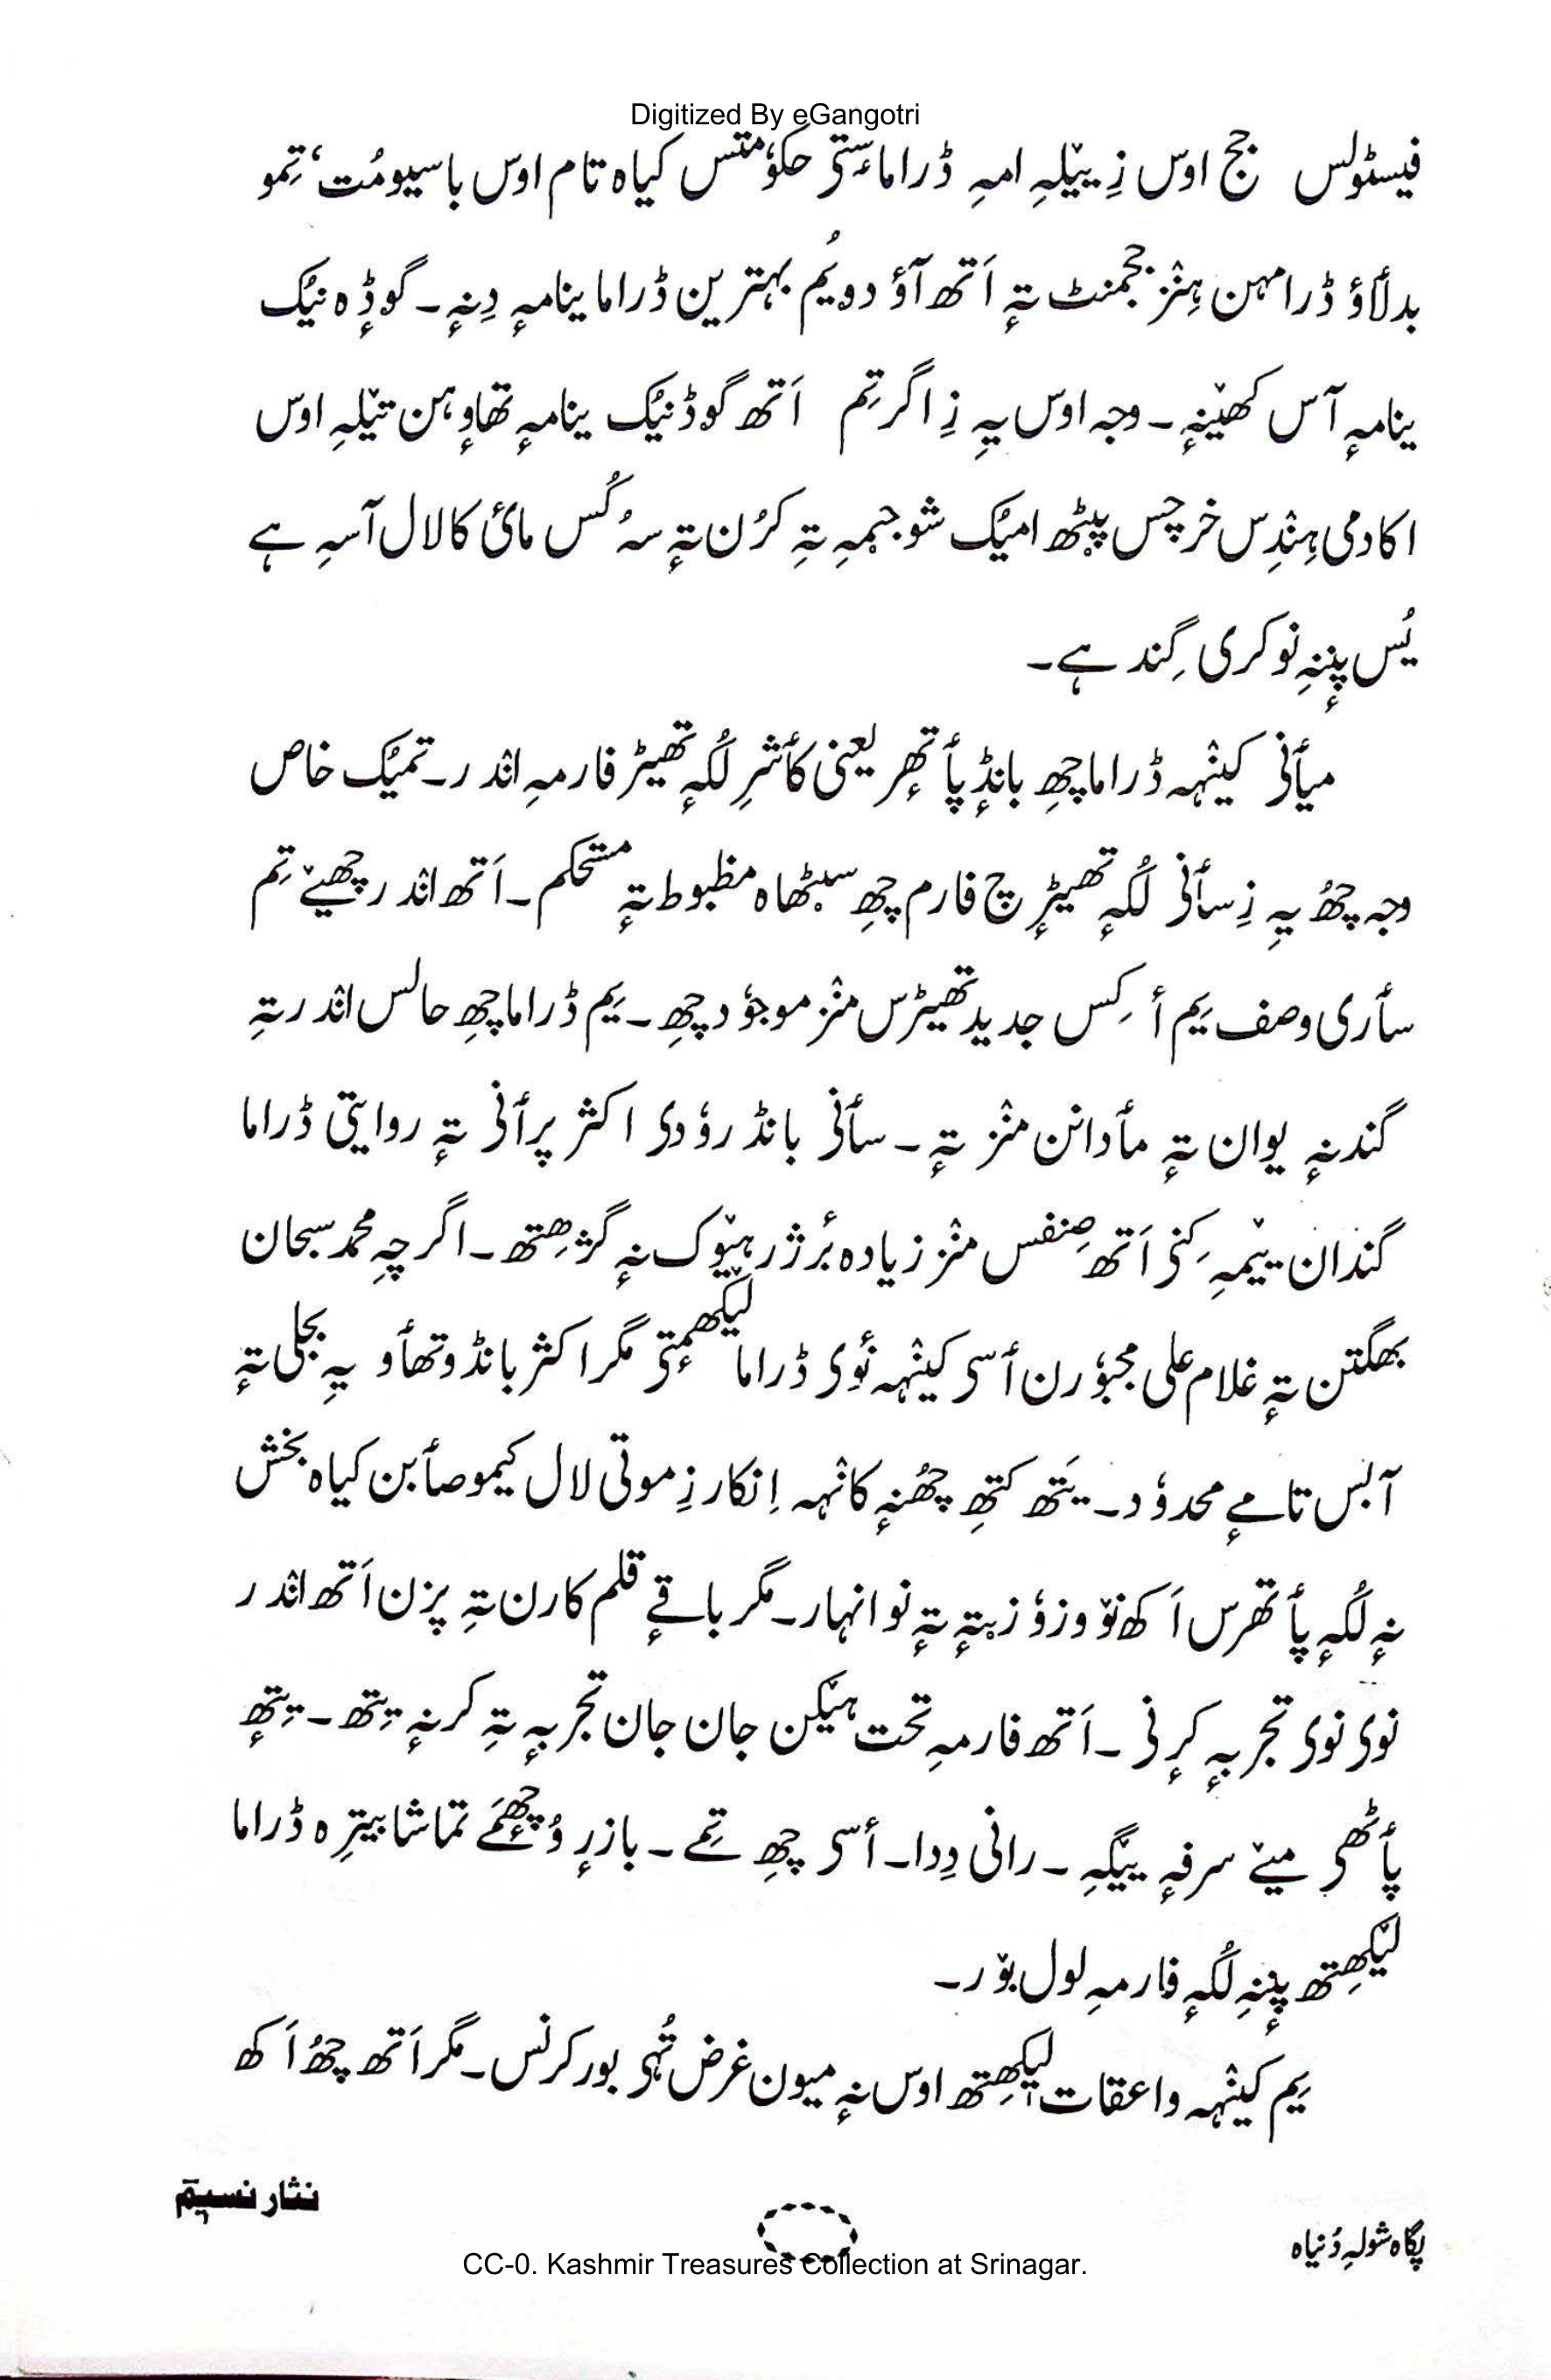 Digitized By eGangotri
فیسٹولس جج اوس زِ ییٚلہِ امہِ ڈراماہٕستۍ حکوٗمتس کیاہ تام اوس باسیومُت، تِمو
بدلٲؤ ڈرامہن ہِنٛز ججمنٹ تہٕ اَتھ آؤ دویُم بہترین ڈراما ینامہٕ دِنہٕ۔ گوڈٕہ نیُک
ینامہٕ آس کھیٚنہٕ۔ وجہ اوس یہِ زِ اگر تِم اَتھ گوڈنیُک ینامہٕ تھاوٕہن تیٚلہِ اوس
اکادمی ہِنٛدِس خرچس پؠٹھ امیُک شو جٔمہِ تہِ کرُن تہٕ سہُ کُس مائی کا لال آسہِ ہے
یُس پننہِ نوکری گِندِ ہے۔
میٲنۍ کینٛہہ ڈراما چھِ بانڈٕ پٲتھٕر یعنی کٲشرِ لُکہٕ تھیٹر فارمہِ انٛدر۔ تمیُک خاص
وجہ چھُ یہِ زِ سٲنۍ لُکہٕ تھیٹرٕچ فارم چھِ سٮ۪ٹھاہ مظبوط تہٕ مستحکم۔ اَتھ انٛدر چھیےٚ تِم
سٲری وصف یِم أکِس جدید تھیٹرس منٛز موجوٗد چھِ۔ یِم ڈراما چھِ حالس انٛدر تہِ
گندنہٕ یوان تہٕ مٲدانن منٛز تہٕ۔ سٲنۍ بانڈ روٗدۍ اکثر پرٲنۍ تہٕ روایتی ڈراما
گندان ییٚمہِ کِنۍ اَتھ صِنفس منٛز زیادہ بُرژر ہیوٚک نہٕ گژھِتھ۔ اگرچہِ محمد سبحان
بھگتن تہٕ غلام علی مجبوٗرن أسۍ کینٛہہ نٔوۍ ڈراما لیٚکھمٕتۍ مگر اکثر بانڈو تھٲو یہِ بجلی تہٕ
آبس تامے محدوٗد۔ یَتھ کتھِ چھُنہٕ کانٛہہ اِنکار زِ موتی لال کیموصٲبن کیاہ بخش
نہٕ لُکہٕ پٲتھرس اَکھ نوٚو وزوٗز بتہٕ تہٕ نو انہار۔ مگر باقے قلم کارن تہِ پزن اَتھ انٛدر
نوی نوی تجربہٕ کرٕنۍ۔ اَتھ فارمہِ تحت ہیٚکن جان جان تجربہٕ تہِ کرنہٕ یِتھ۔ یِتھٕ
پٲٹھۍ میےٚ سرفہٕ ییٚگہِ۔ رانی دِدا۔ أسۍ چھِ تِمے۔ بازرٕ وُچھمٕے تماشا بیترِہ ڈراما
لیٚکھِتھ پننہِ لُکہٕ فارمہِ لول بوٚر۔
یِم کینٛہہ واعقات لیٚکھِتھ اوس نہٕ میون غرض تُہۍ بور کرنس۔ مگر اَتھ چھُ اَکھ
نثار نسیم
پگاہ شولہِ دُنیاہ
CC-0. Kashmir Treasures Collection at Srinagar.